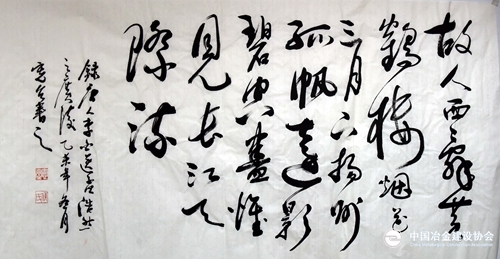 故人西辭黄
鶴樓烟花
三月下揚州
孤帆遠影
碧空盡惟
見長江天
際流
錄唐人李白送孟浩然
之廣陵乙未年冬月
書之
中国冶金建设协会